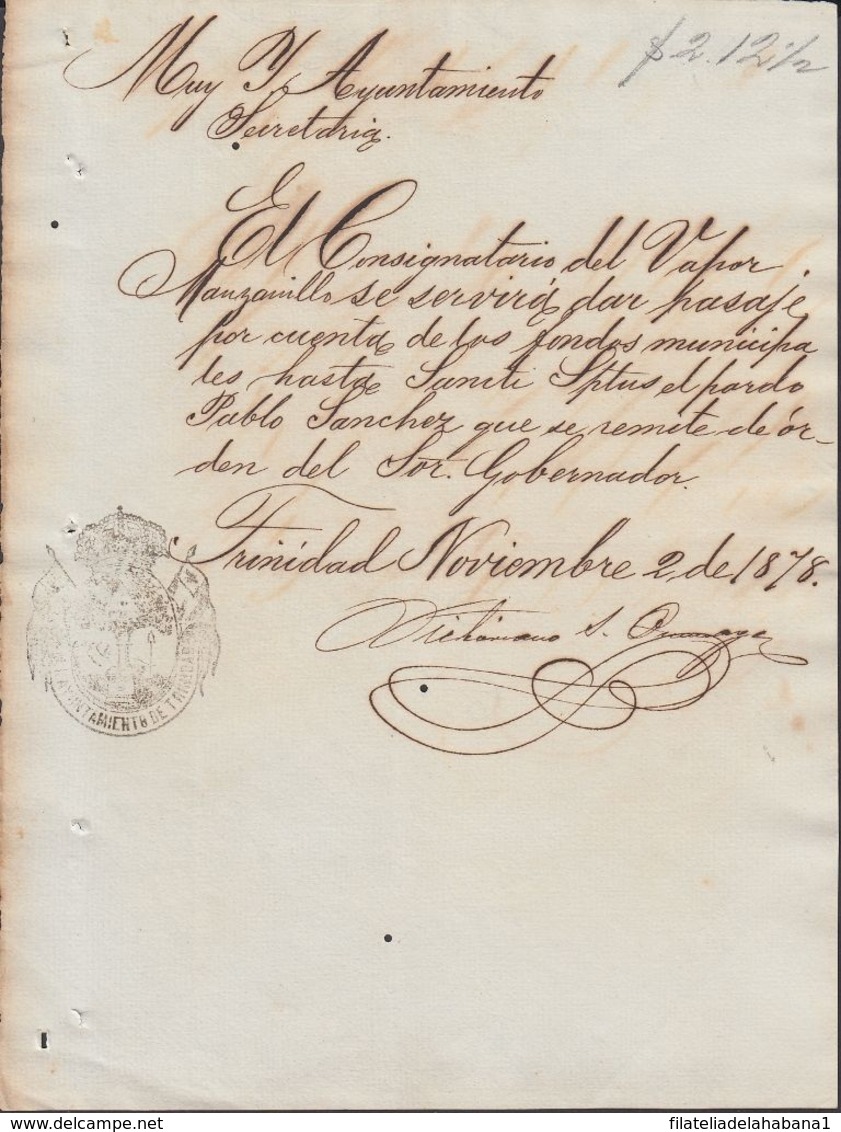 $2.12 1/2
Muy Y. Ayuntamiento
Secretaria.
El Consignatario del Vapor
Manzanillo se servirá dar pasaje
por cuenta de los fondos municipa
les hasta Sancti Sptus el pardo
Pablo Sanchez que se remite de ór-
den del Sor. Gobernador.
Trinidad Noviembre 2 de 1878.
Victoriano S.
AYUNTAMIENTO DE TRINIDAD
delcampe.net
filateliadelahabana1